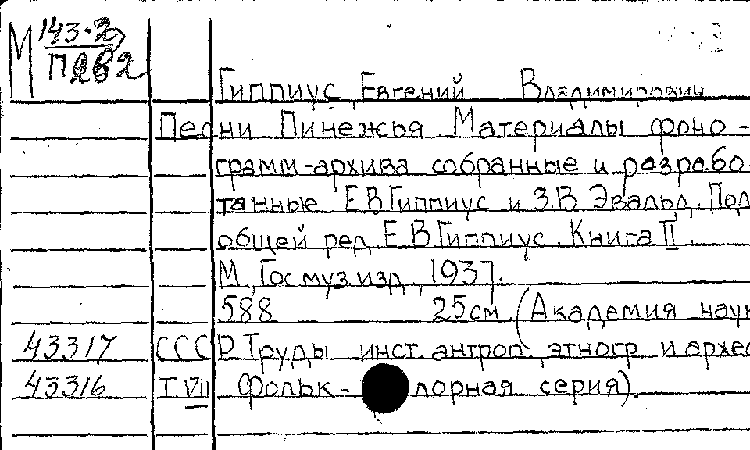 М 143.2
П262
Гиппиус, Евгений Владимирович
Песни Пинежья Материалы фоно-
грамм-архива собранные и разрабо
танные Е.В Гиппиус и З.В Эвальд. Под
общей ред. Е.В.Гиппиус. Книга II.
М, Гос муз изд, 1937.
588 25см. (Академия наук
43317 СССР Труды инст. антроп. этногр и архео
43316 T VII Фольк-лорная серия).